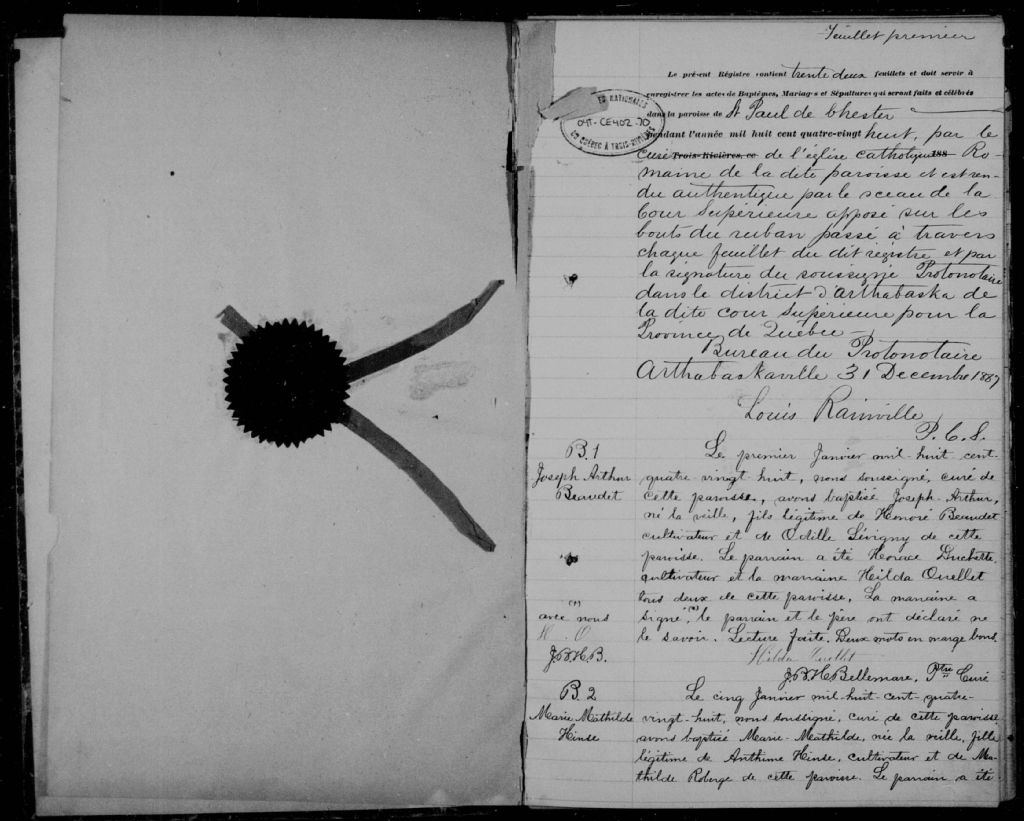 Feuillet premier
Le présent Régistre contient trente deux feuillets et doit servir à
enregistrer les actes de Baptêmes, Mariages et Sépultures qui seront faits et célébrés
dans la paroisse de St Paul de Chester
pendant l'année mil huit cent quatre-vingt huit, par le
Curé Trois-Rivières, ce de l'église catholique 188 Ro-
maine de la dite paroisse et est ren-
du authentique par le sceau de la
Cour Supérieure apposé sur les
bouts du ruban passé à travers
chaque feuillet du dit régistre et par
la signature du soussigné Protonotaire
dans le district d'Arthabaska de
la dite cour Supérieure pour la
Province de Québec -
Bureau du Protonotaire
Arthabaskaville 31 Decembre 1887
Louis Rainville
P. C. S.
ES NATIONALES
04T-CE402-70
DU QUÉBEC À TROIS-RIVIÈRES
B. 1
Joseph Arthur
Beaudet
Le premier Janvier mil-huit cent-
quatre vingt-huit, nous soussigné, curé de
cette paroisse, avons baptisé Joseph-Arthur,
né la veille, fils légitime de Honoré Beaudet
cultivateur et de Odille Sévigny de cette
paroisse. Le parrain a été Horace Duchette,
cultivateur et la marraine Hilda Ouellet
tous deux de cette paroisse. La marraine a
signé, (1) le parrain et le père ont déclaré ne
le savoir. Lecture faite. Deux mots en marge bons.
(1)
avec nous
H. O
J.B.H.B.
Hilda Ouellet
J.B.H Bellemare, Ptre Curé
B. 2
Marie Mathilde
Hinse
Le cinq Janvier mil-huit-cent-quatre-
vingt-huit, nous soussigné, curé de cette paroisse
avons baptisé Marie-Mathilde, née la veille, fille
légitime de Anthime Hinse, cultivateur et de Ma-
thilde Roberge de cette paroisse. Le parrain a été